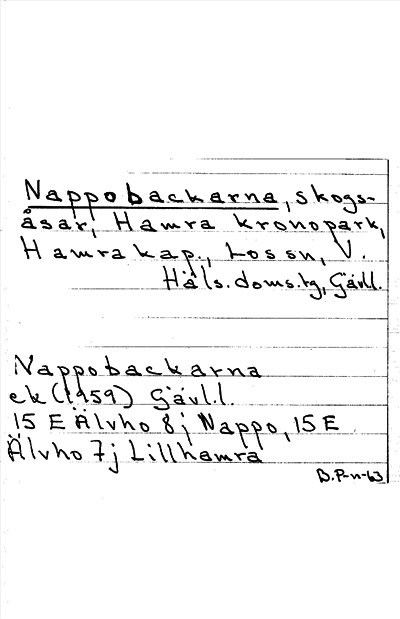 Nappobackarna, skogs-
åsar, Hamra kronopark,
Hamra kap., Los sn, V.
Häls. doms.tg, Gävl.
Nappobackarna
ek (1959) Gävl.l.
15 E Älvho 8j Nappo, 15 E
Älvho 7j Lillhamra
B.P-n-63